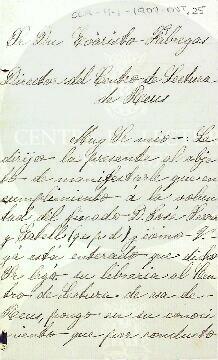 Sr Dn Evaristo Fábregas
Director del Centro de Lectura
de Reus
Muy Sr mio = Le
dirijo la presente al obje-
to de manifestarle que en
cumplimiento á la volun-
tad del finado D. José
y (q e p d) y como V.
ya está enterado que dicho
Sr legó su libreria al Cen-
tro de Lectura de esa de
Reus, pongo en su conoci-
miento que por conducto